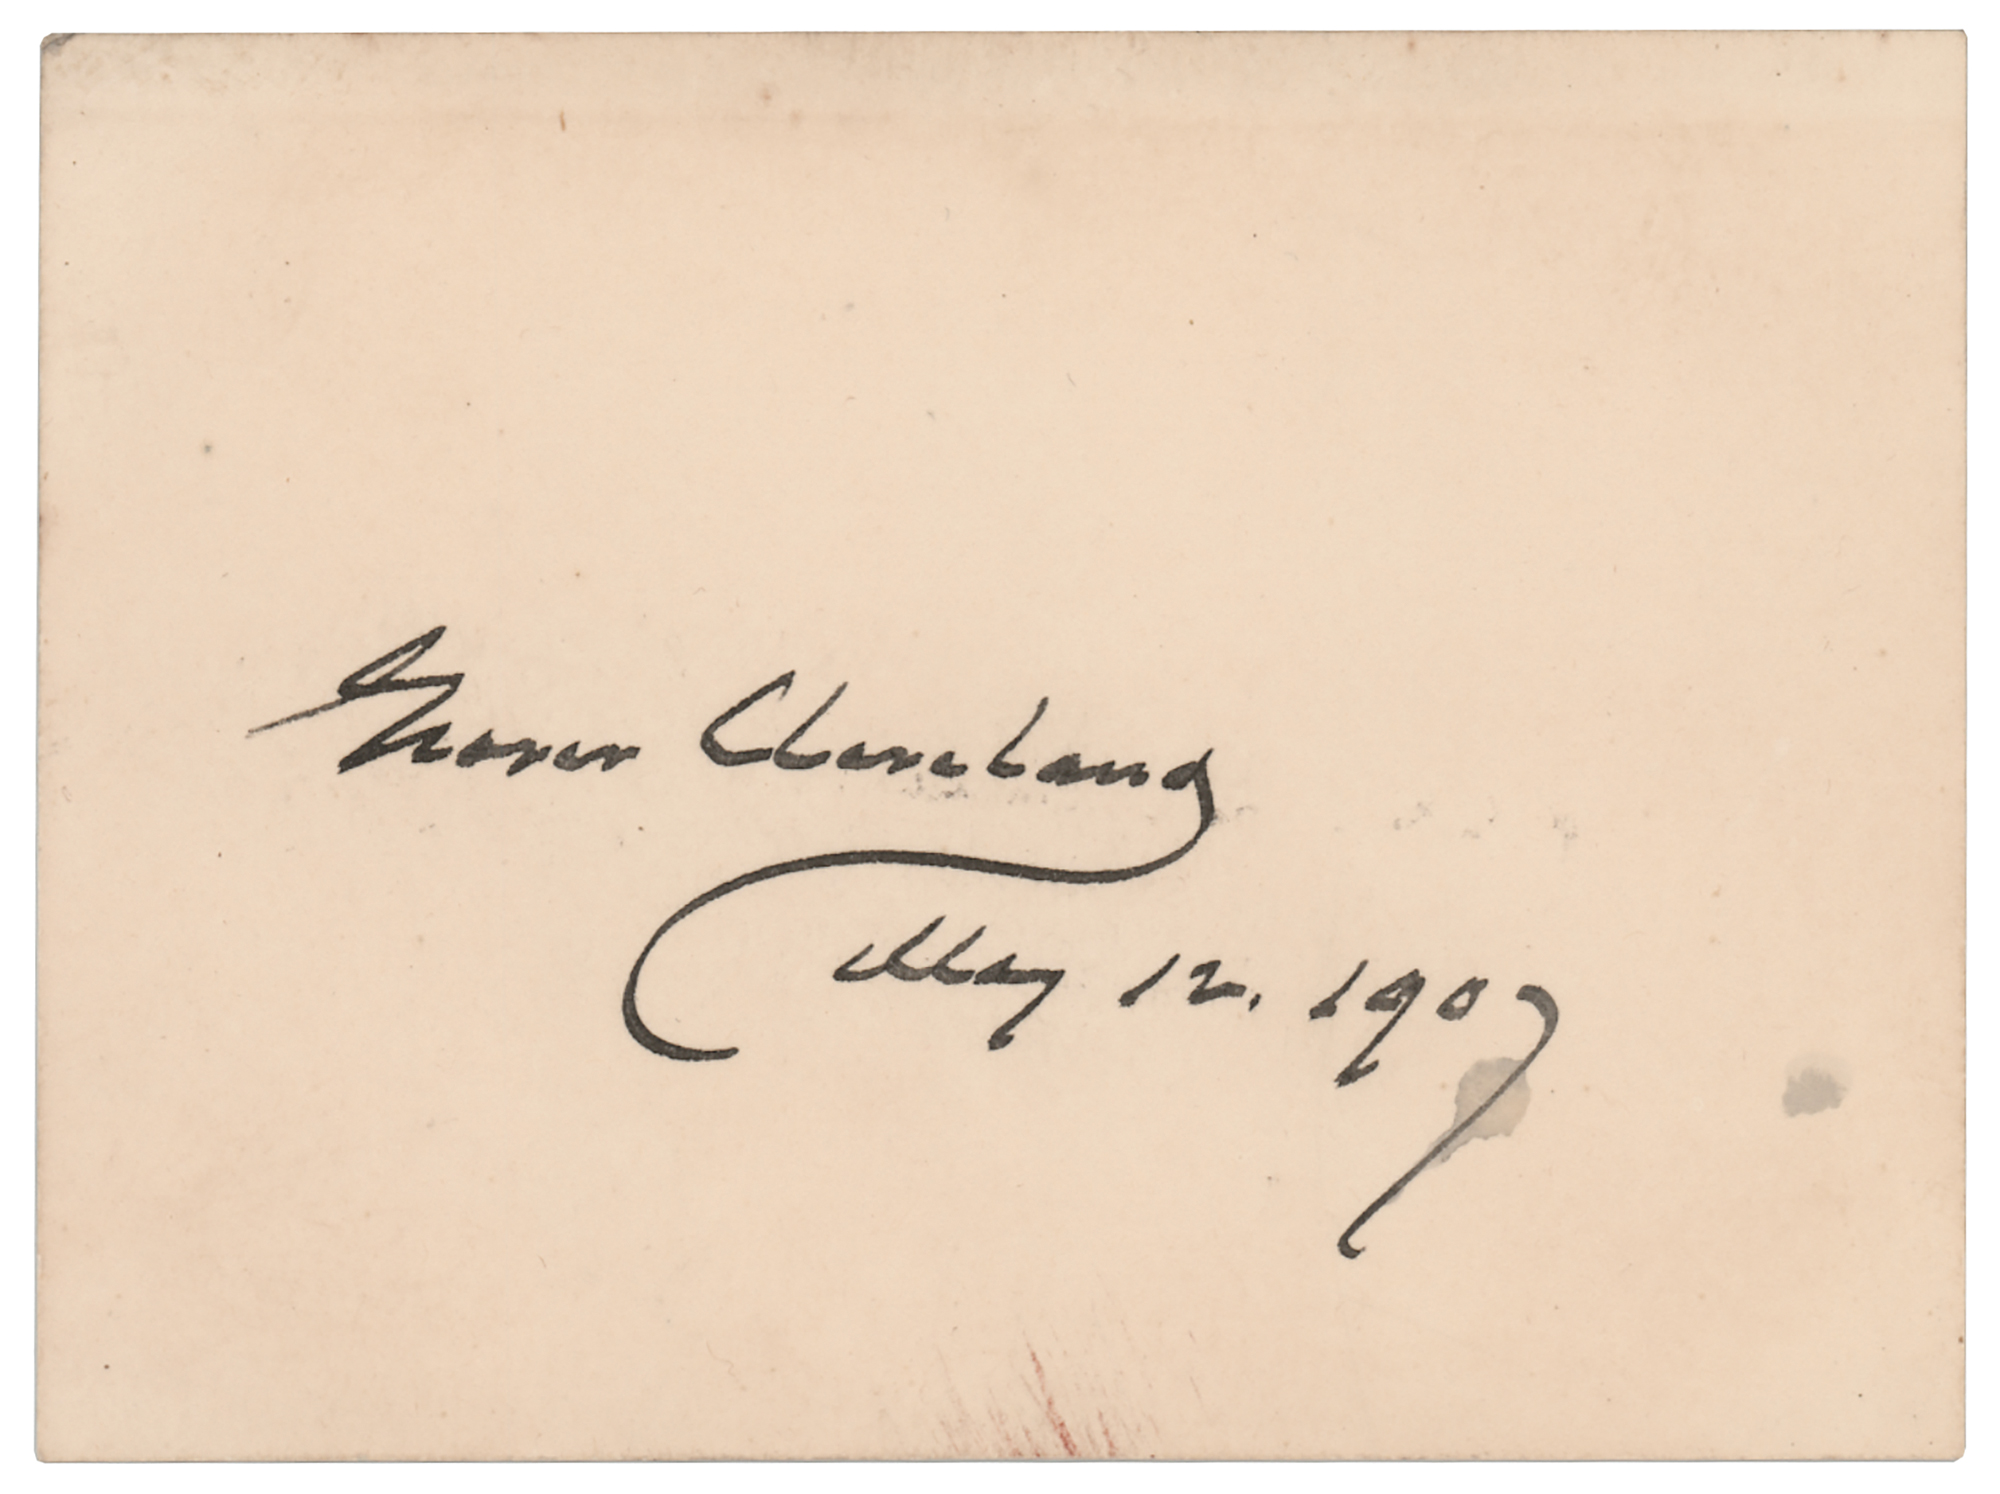 Grover Cleveland
May 12. 1907